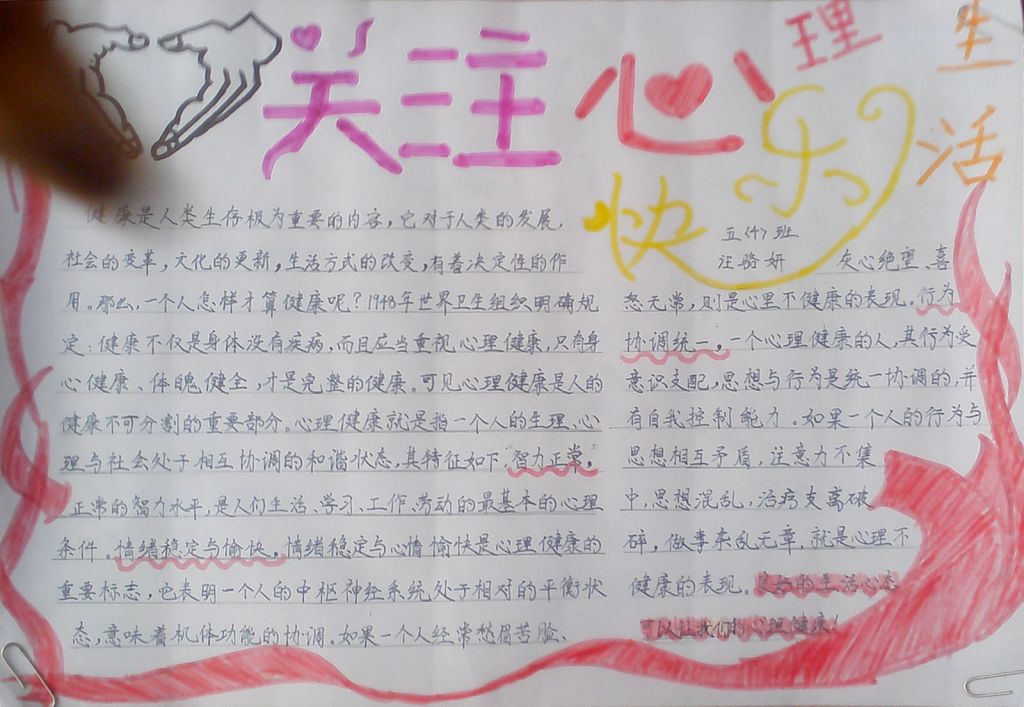 关注心理
快乐生活
五(4)班
汪骆妍
健康是人类生存极为重要的内容,它对于人类的发展,
社会的变革,文化的更新,生活方式的改变,有着决定性的作
用。那么,一个人怎样才算健康呢?1948年世界卫生组织明确规
定:健康不仅是身体没有疾病,而且应当重视心理健康,只有身
心健康、体魄健全,才是完整的健康。可见心理健康是人的
健康不可分割的重要部分。心理健康就是指一个人的生理、心
理与社会处于相互协调的和谐状态,其特征如下:智力正常,
正常的智力水平,是人们生活、学习、工作、劳动的最基本的心理
条件。情绪稳定与愉快,情绪稳定与心情愉快是心理健康的
重要标志,它表明一个人的中枢神经系统处于相对的平衡状
态,意味着机体功能的协调。如果一个人经常愁眉苦脸、
灰心绝望、喜
怒无常,则是心里不健康的表现。行为
协调统一,一个心理健康的人,其行为受
意识支配,思想与行为是统一协调的,并
有自我控制能力。如果一个人的行为与
思想相互矛盾,注意力不集
中,思想混乱,治疗支离破
碎,做事杂乱无章,就是心理不
健康的表现。良好的生活心态
可以让我们的心理健康!